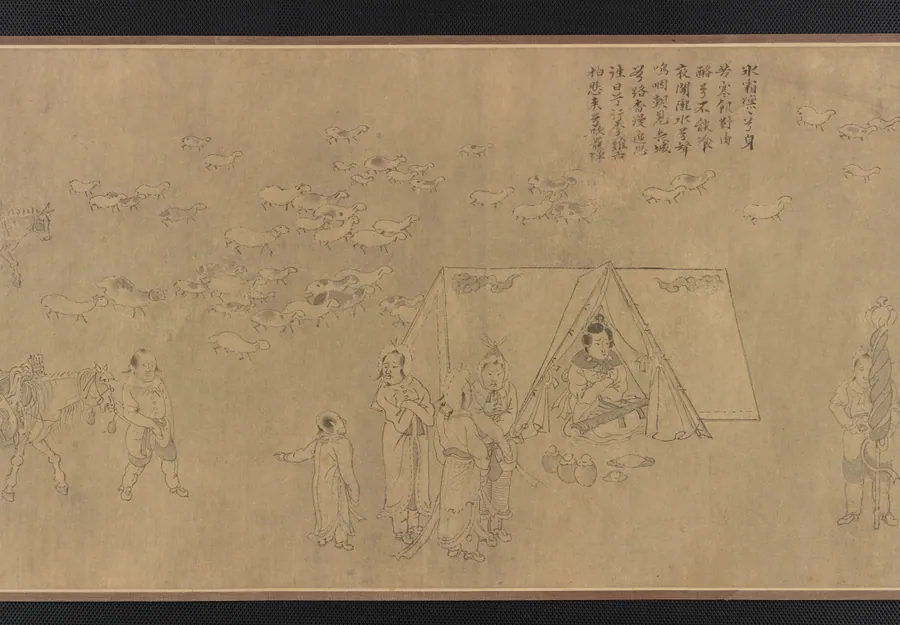 氷霜凜〻兮身
苦寒飢對肉
酪兮不能飡
夜聞隴水兮聲
嗚咽朝見長城
兮路杳漫追思
往日兮行李難六
拍悲來兮欲罷彈